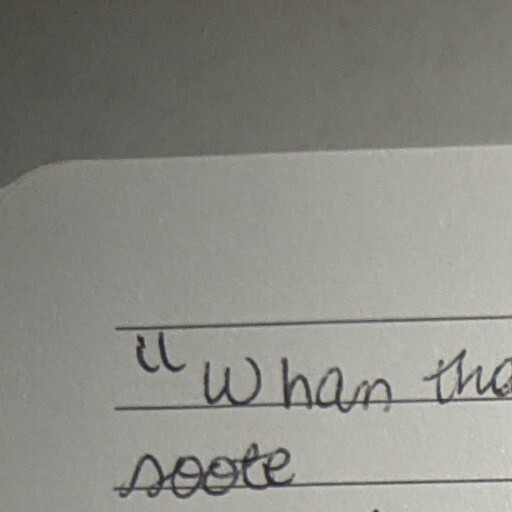 “Whan tha
soote